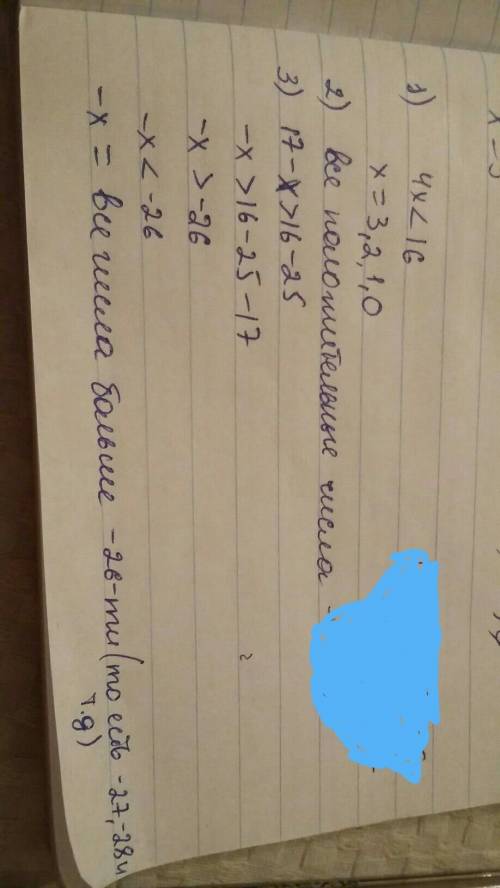 1) 4x < 16
x = 3, 2, 1, 0
2) все положительные числа
3) 17 - x > 16 - 25
-x > 16 - 25 - 17
-x > -26
-x < -26
-x = все числа больше -26-ти (то есть -27, -28 и
т.д)